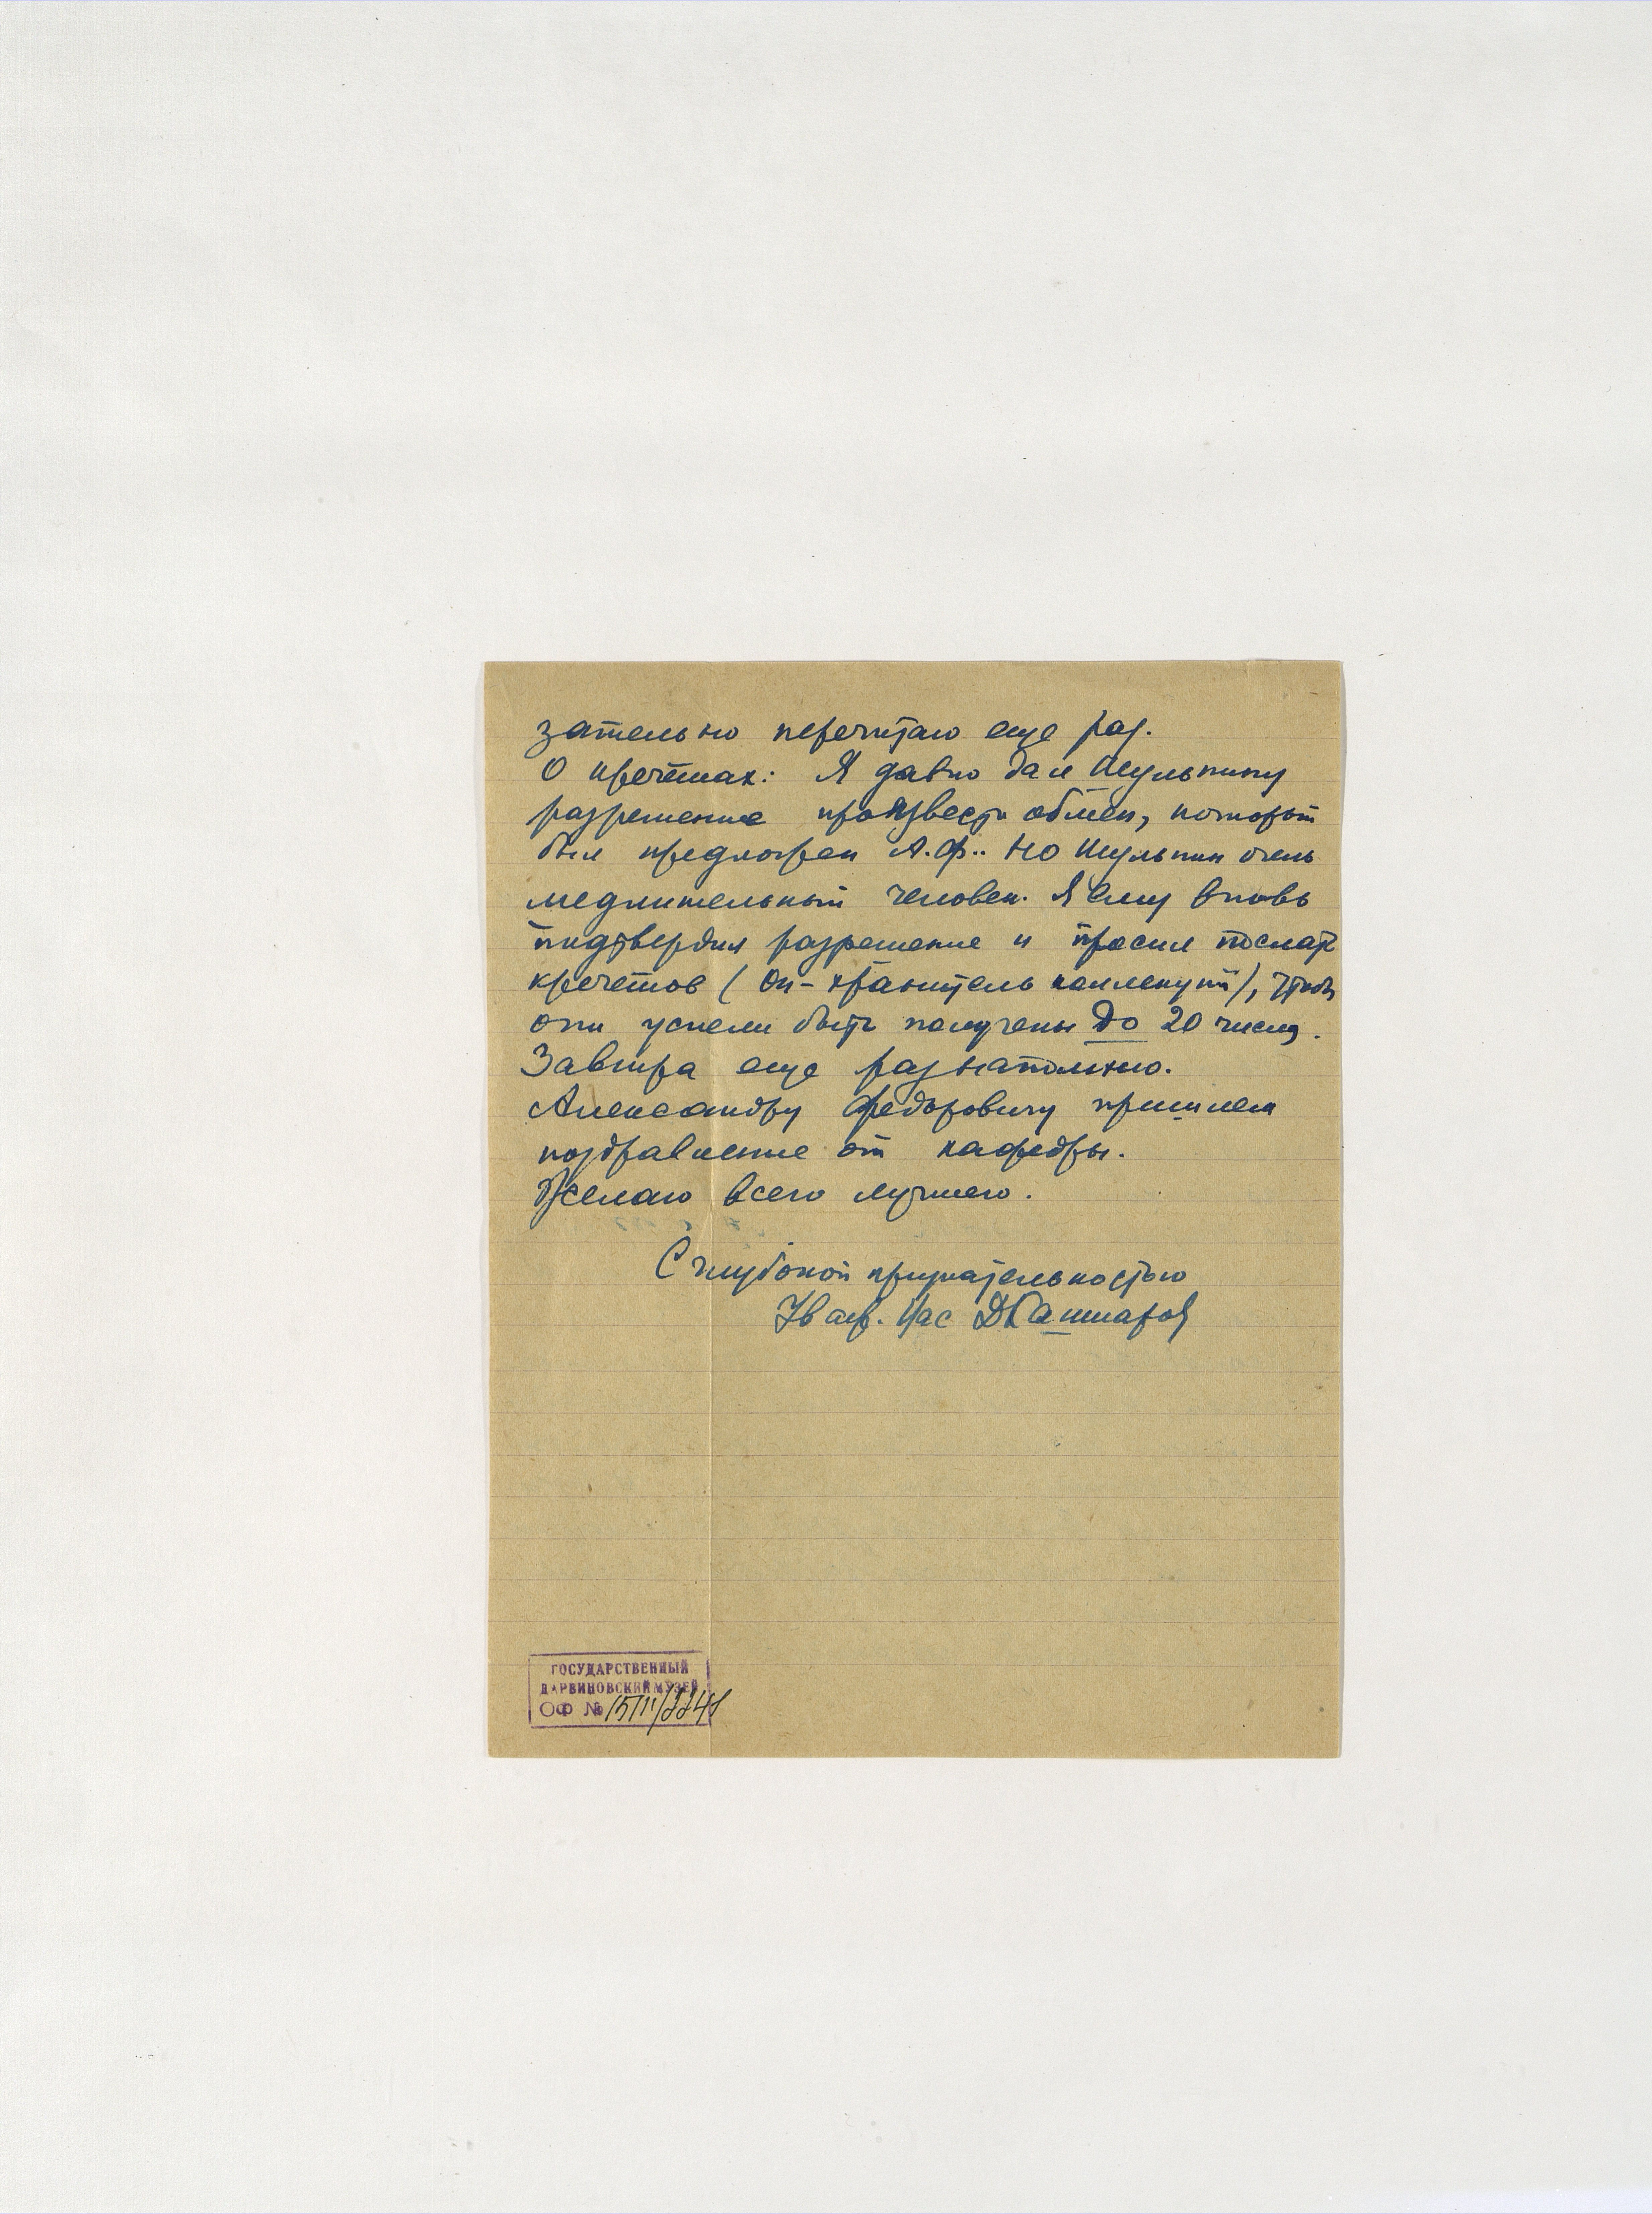 зательно перечитаю еще раз.
О кречетах: Я давно дал Шульпину
разрешение произвести обмен, который
был предложен А.Ф.. Но Шульпин очень
медлительный человек. Я ему вновь
подтвердил разрешение и просил послать
кречетов (Он – хранитель коллекций), чтобы
они успели быть получены до 20 числа.
Завтра еще раз напомню.
Александру Федоровичу пришлем
поздравление от кафедры.
Желаю всего лучшего.
С глубокой признательностью
Уваж. Вас ДКашкаров
ГОСУДАРСТВЕННЫЙ
ДАРВИНОВСКИЙ МУЗЕЙ
ОФ №